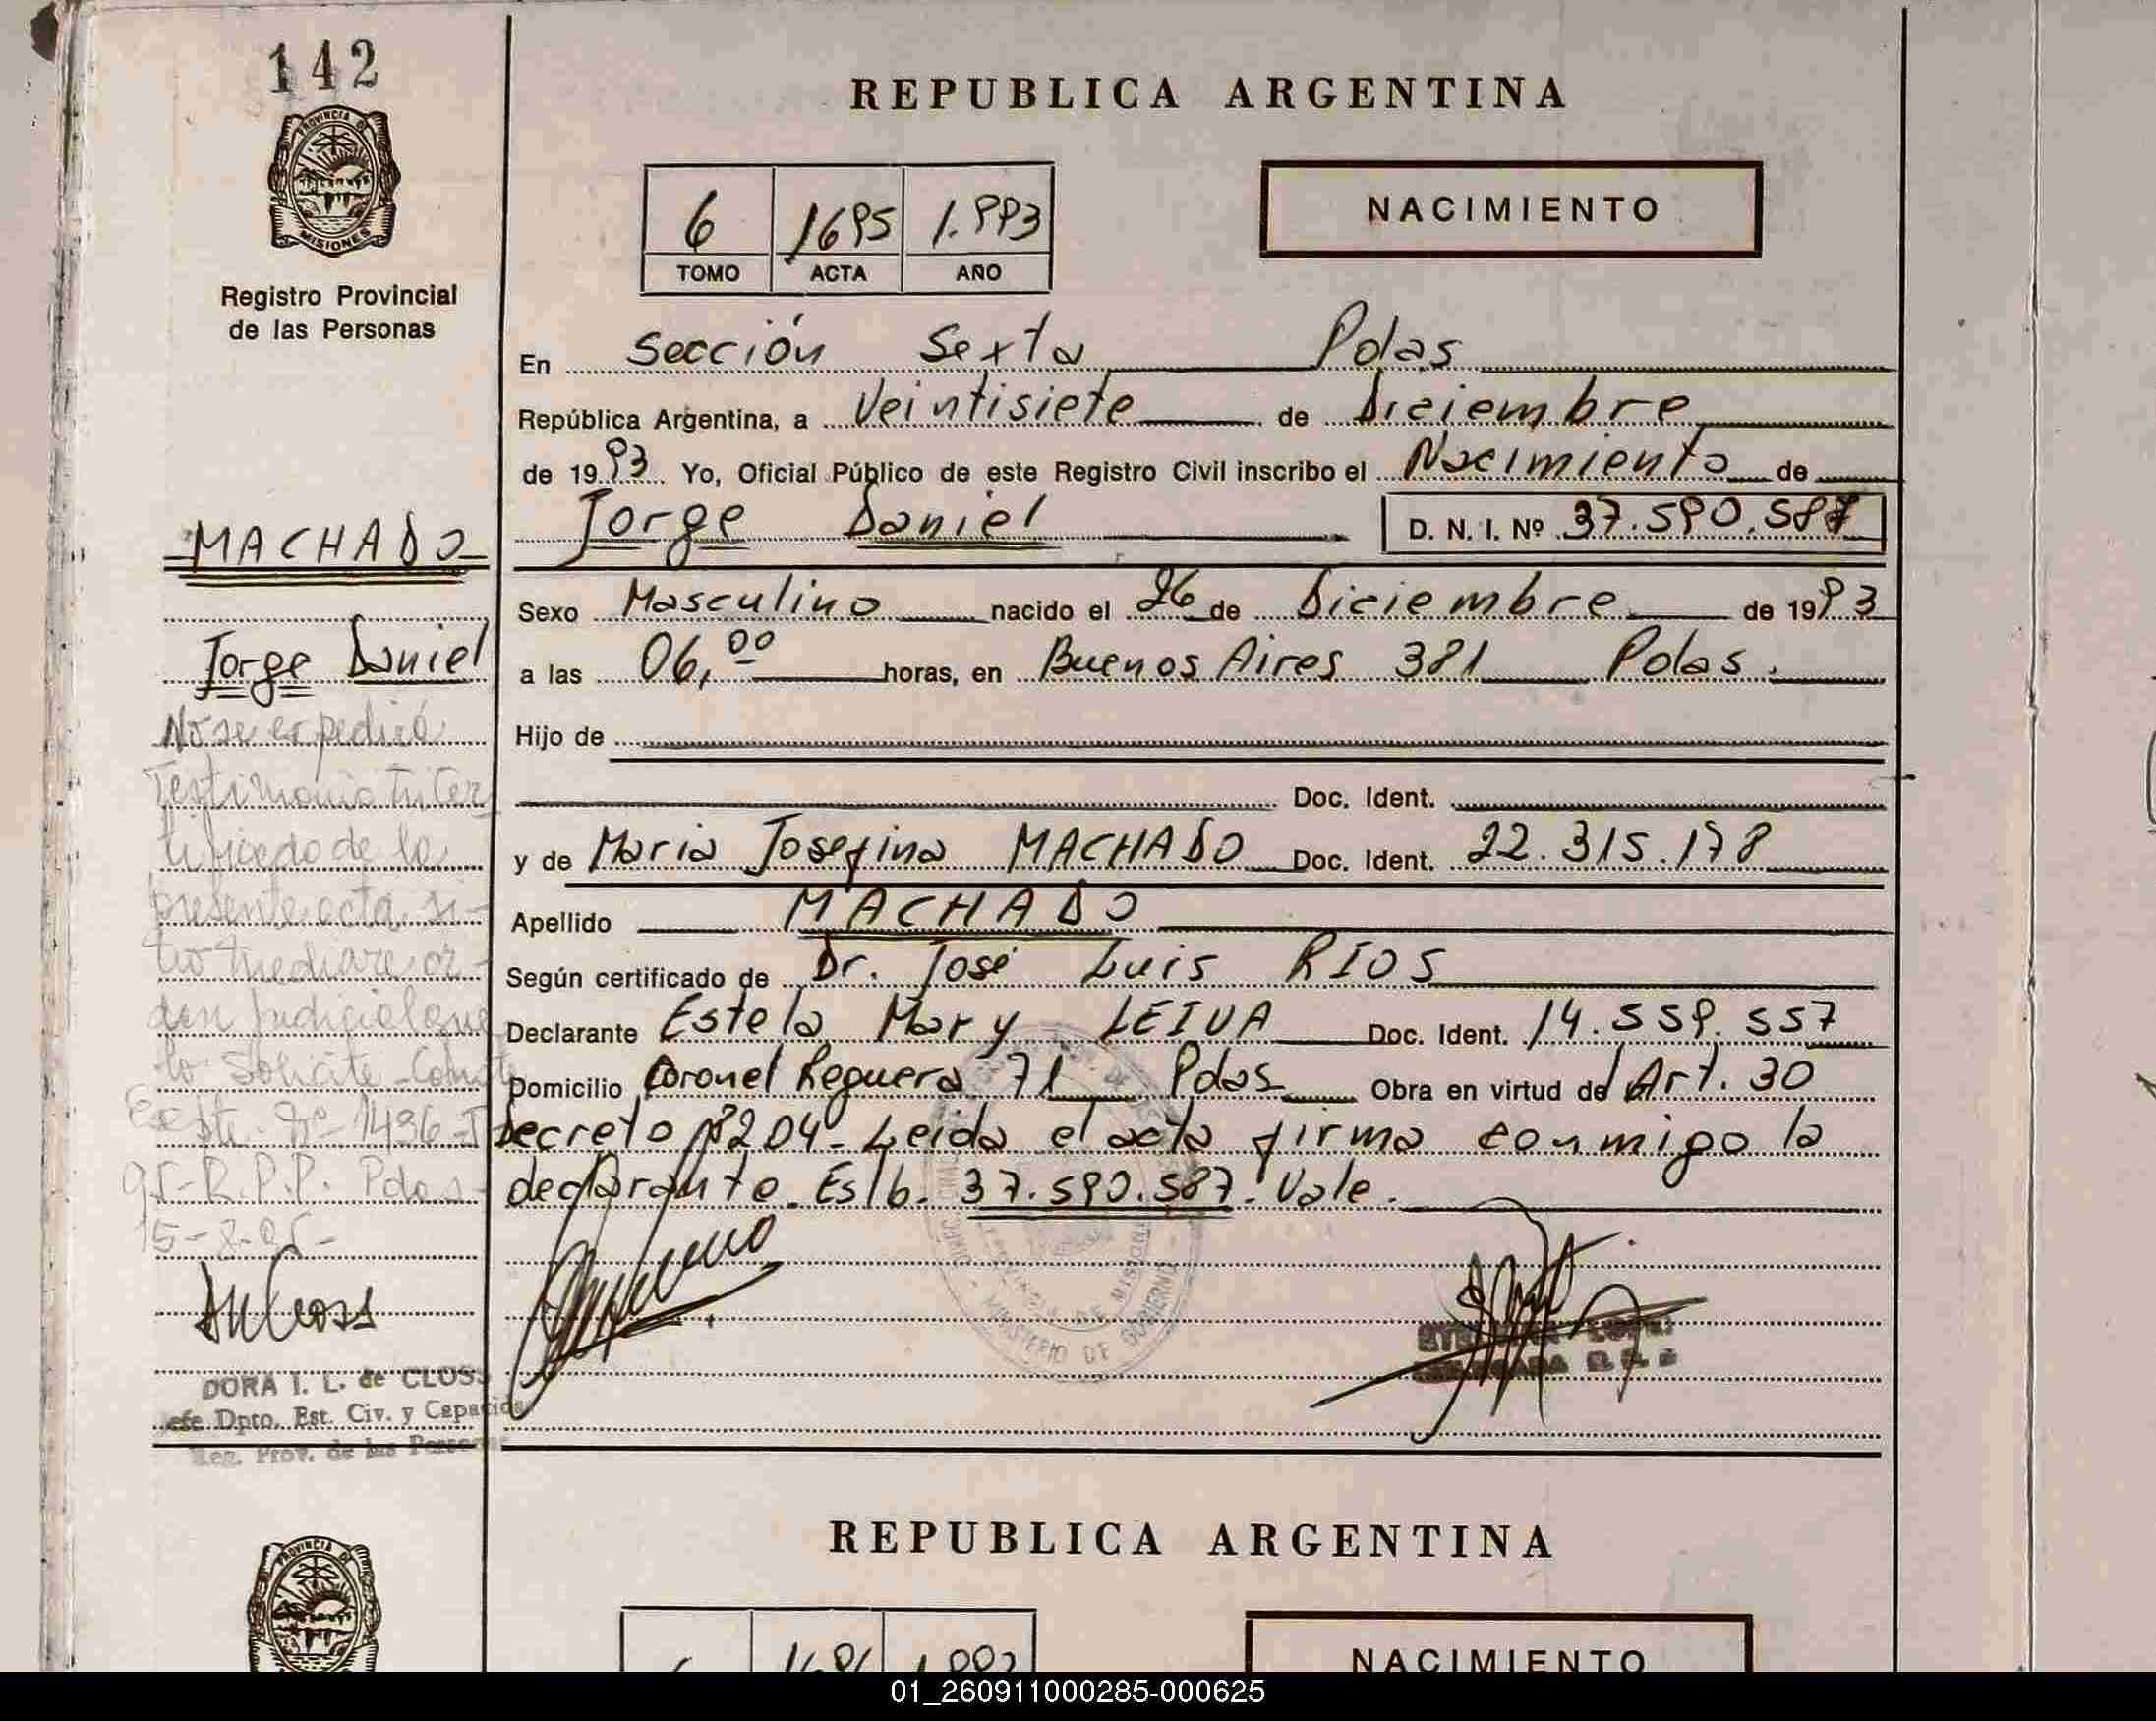 142
REPUBLICA ARGENTINA
PROVINCIA DE
MISIONES
Registro Provincial
de las Personas
6 1695 1.993
TOMO ACTA AÑO
NACIMIENTO
En Sección Sexta Pdas
República Argentina, a Veintisiete de Diciembre
de 1993 Yo, Oficial Público de este Registro Civil inscribo el Nacimiento de
Jorge Daniel D. N. I. Nº 37.590.587
MACHADO
Sexo Masculino nacido el 26 de Diciembre de 1993
Jorge Daniel
a las 06,00 horas, en Buenos Aires 381 Pdas.
Hijo de
Doc. Ident.
y de Maria Josefina MACHADO Doc. Ident. 22.315.178
Apellido MACHADO
Según certificado de Dr. José Luis RIOS
Declarante Estela Mary LEIVA Doc. Ident. 14.559.557
Domicilio Coronel Reguera 71 Pdas Obra en virtud del Art. 30
Decreto 8204- Leida el acta firma conmigo la
declarante. Es/b. 37.590.587. Vale.
No se expedirá
Testimonio ni cer
tificado de la
presente acta si-
no mediare or-
den Judicial que
lo solicite
95-R.P.P. Pdas-
MINISTERIO DE GOBIERNO
PROVINCIA DE MISIONES
DORA I. L. de CLOSS
Jefe Dpto. Est. Civ. y Capacidad
Reg. Prov. de las Personas
REPUBLICA ARGENTINA
PROVINCIA DE
NACIMIENTO
01_260911000285-000625